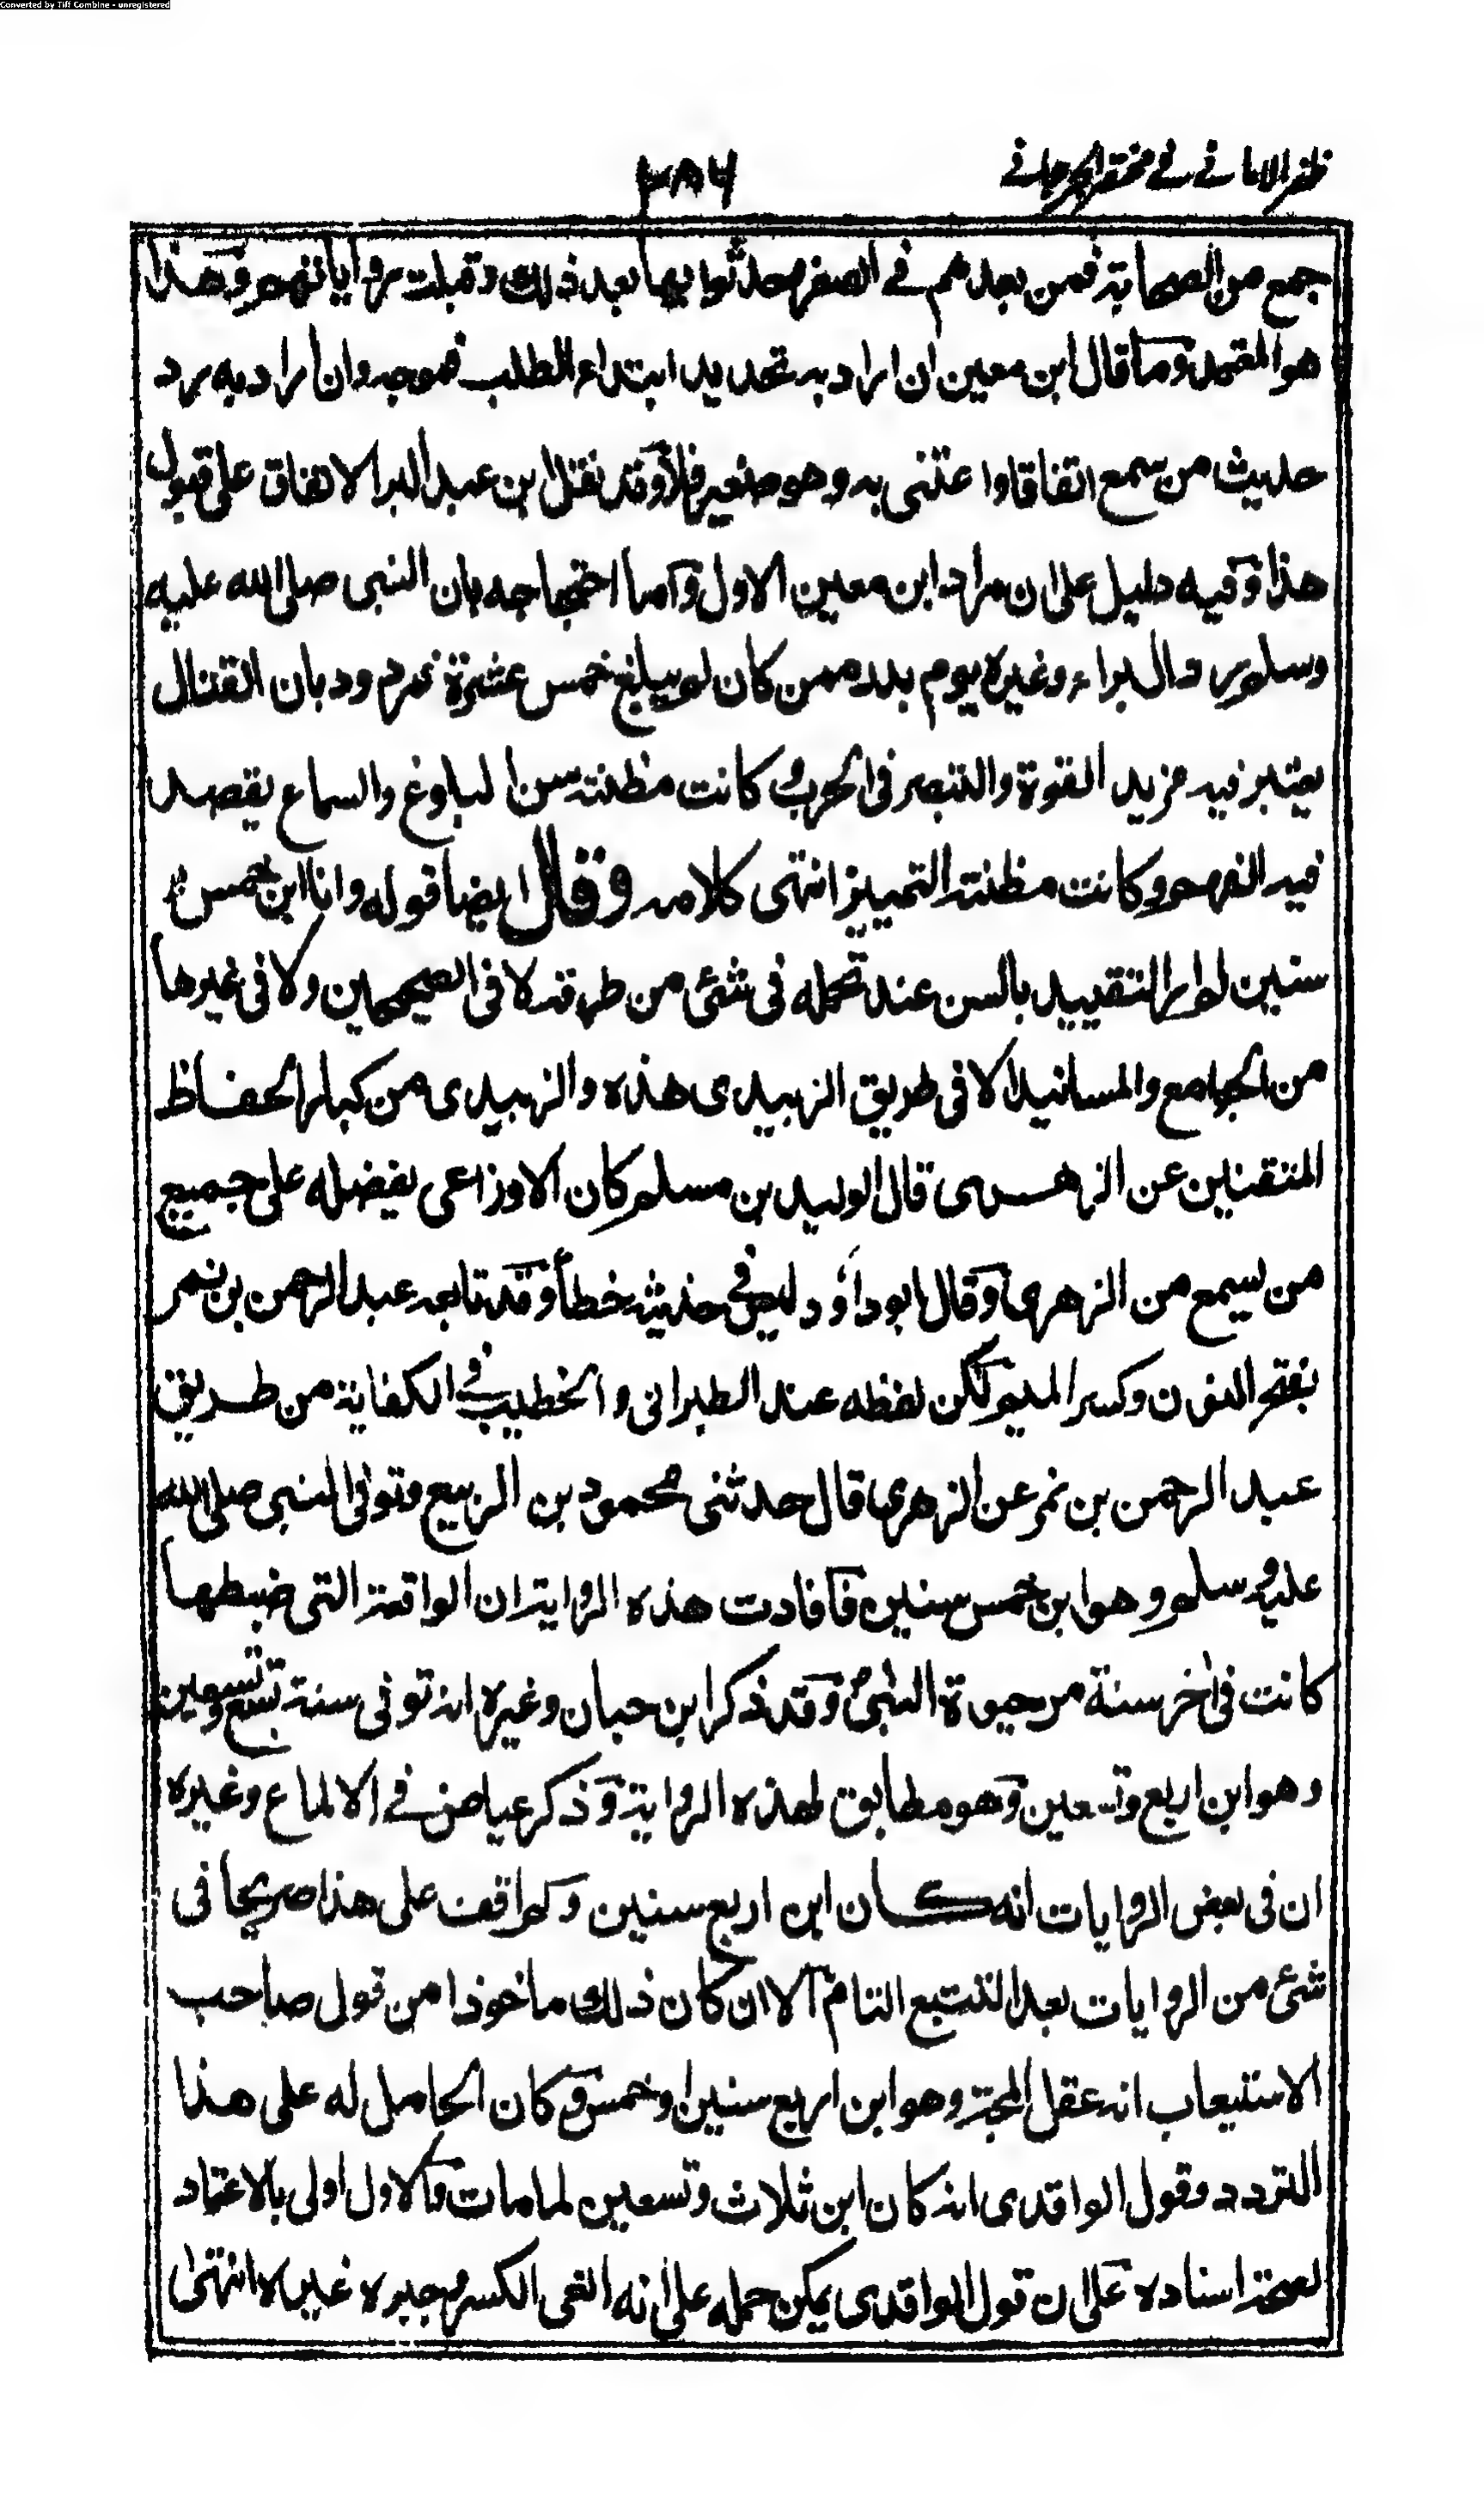 Converted by Tiff Combine - unregistered
ظفر الامانى فى مختصر الجرجانى
٢٨٦
جمع من الصحابة فمن بعدهم فى الصغر حدثوا بها بعد ذلك وقبلت رواياتهم وهذا
هو المعتمد وما قال ابن معين ان اراد به تحديد ابتداء الطلب فموجه وان اراد به رد
حديث من سمع اتفاقا او اعتنى به وهو صغير فلا وقد نقل ابن عبد البر الاتفاق على قبول
هذا وفيه دليل على ان مراد ابن معين الاول واما احتجاجه بان النبى صلى الله عليه
وسلم رد البراء وغيره يوم بدر ممن كان لم يبلغ خمس عشرة فمردود بان القتال
يعتبر فيه مزيد القوة والتبصر فى الحرب وكانت مظنته سن البلوغ والسماع يقصد
فيه الفهم وكانت مظنته التمييز انتهى كلامه وقال ايضا قوله وانا ابن خمس
سنين لم ار التقييد بالسن عند تحمله فى شئ من طرقه لا فى الصحيحين ولا فى غيرها
من الجوامع والمسانيد الا فى طريق الزبيدى هذه والزبيدى من كبار الحفاظ
المتقنين عن الزهرى قال الوليد بن مسلم كان الاوزاعى يفضله على جميع
من يسمع من الزهرى وقال ابو داؤد ليس فى حديثه خطأ وقد تابعه عبد الرحمن بن نمر
بفتح النون وكسر الميم لكن لفظه عند الطبرانى والخطيب فى الكفاية من طريق
عبد الرحمن بن نمر عن الزهرى قال حدثنى محمود بن الربيع وتوفى النبى صلى الله
عليه وسلم وهو ابن خمس سنين فافادت هذه الرواية ان الواقعة التى ضبطها
كانت فى اٰخر سنة من حيوة النبى وقد ذكر ابن حبان وغيره انه توفى سنة تسع وتسعين
وهو ابن اربع وتسعين وهو مطابق لهذه الرواية وذكر عياض فى الالماع وغيره
ان فى بعض الروايات انه كان ابن اربع سنين ولم اقف على هذا صريحا فى
شئ من الروايات بعد التتبع التام الا ان كان ذلك ماخوذا من قول صاحب
الاستيعاب انه عقل المجة وهو ابن اربع سنين او خمس وكان الحامل له على هذا
التردد وقول الواقدى انه كان ابن ثلاث وتسعين لما مات والاول اولى بالاعتماد
لصحة اسناده على ان قول الواقدى يمكن حمله على انه الغى الكسر وجبره غيره انتهىٰ